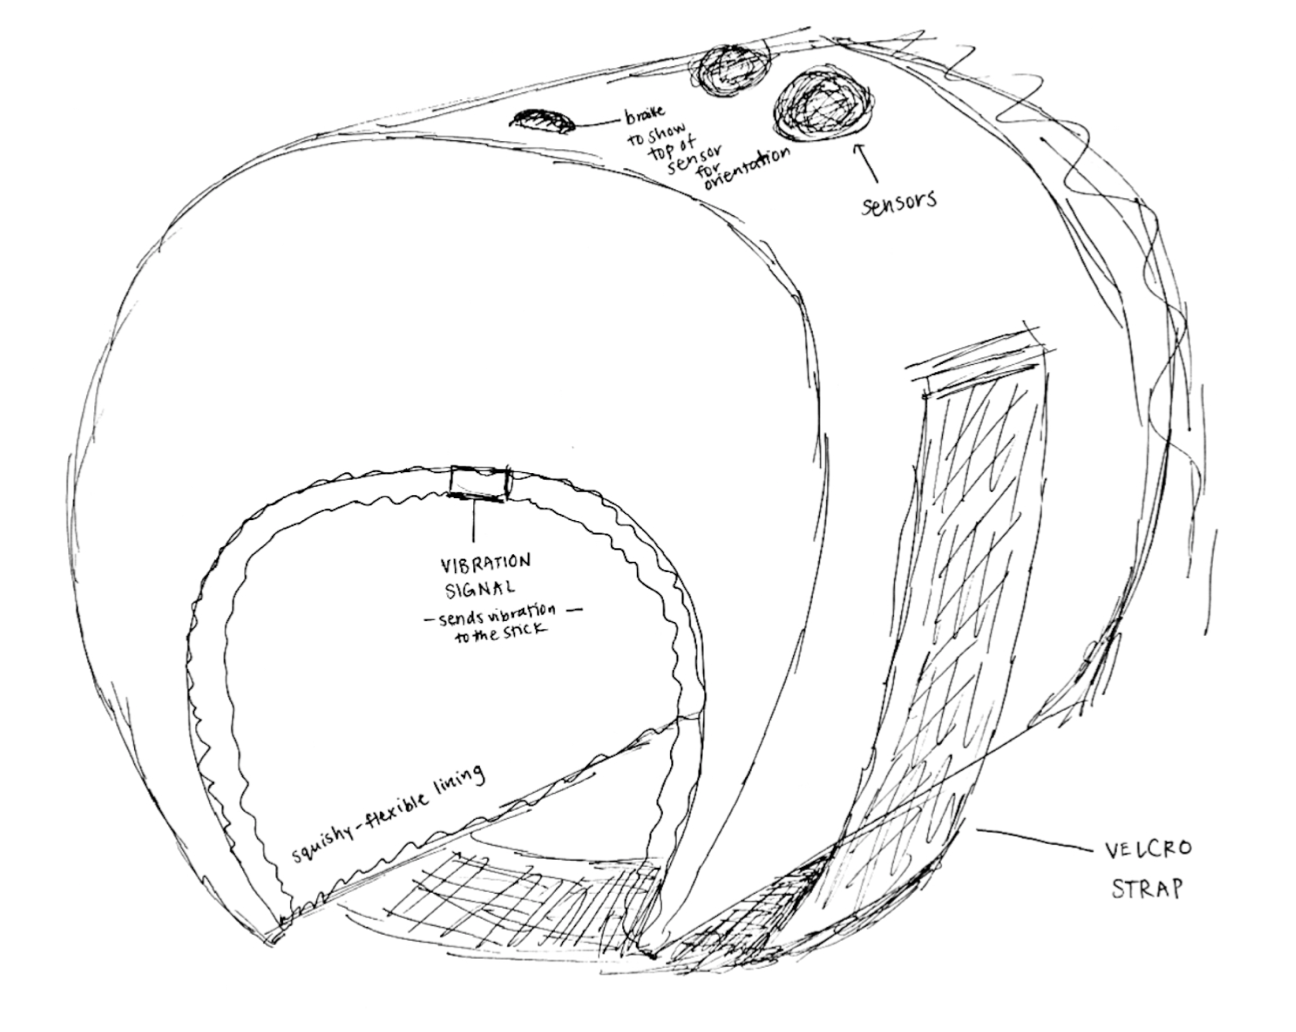 braile
to show
top of
sensor
for
orientation
sensors
VIBRATION
SIGNAL
- sends vibration -
to the stick
squishy-flexible lining
VELCRO
STRAP